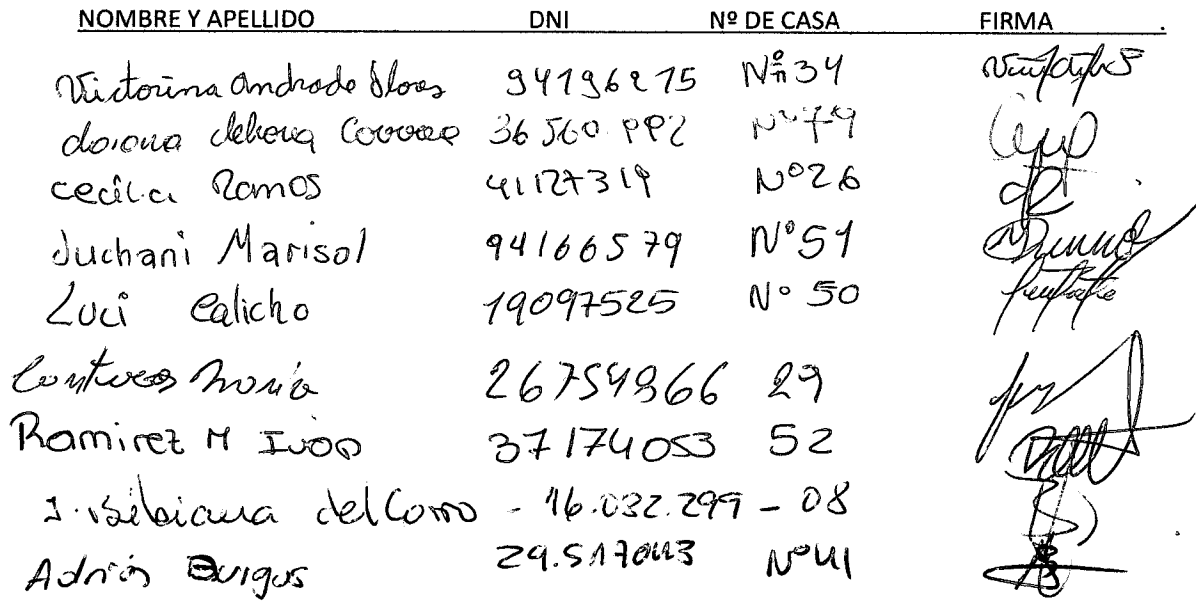 NOMBRE Y APELLIDO DNI Nº DE CASA FIRMA
Victorina Andrade Flores 94196275 Nº 34
36 560 992 Nº 79
Cecilia Ramos 41127319 Nº 26
Juchani Marisol 94166579 Nº 51
Luci Calicho 19097525 Nº 50
Contreras María 26754966 29
Ramirez M Ivan 37174053 52
J. Bibiana del Corro - 16.032.299 - 08
Adrián Burgos 29.517043 Nº 41